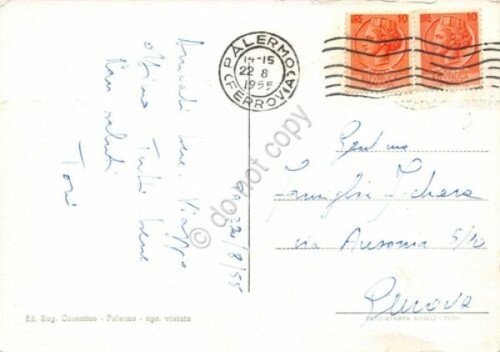 Arrivati bene. Viaggio
ottimo. Tutti bene
Cari saluti
Toni
Pa. 22/8/55
PALERMO
14-15
22 8
1955
FERROVIA
LIRE 10
LIRE 10
Gent.ma
Famiglia
via Ausonia 5/10
Genova
Ed. Rag. Cosentino - Palermo - ripr. vietata
do not copy